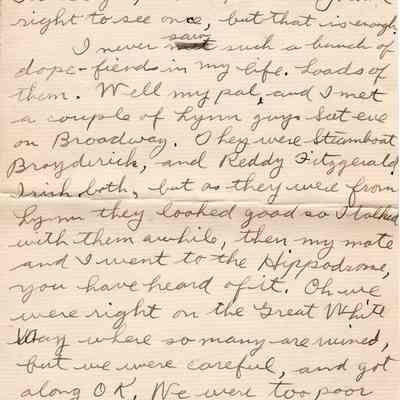 right to see once, but that is enough.
I never saw such a bunch of
dope-fiends in my life. Loads of
them. Well my pal, and I met
a couple of Lynn guys Sat eve
on Broadway. They were Steamboat
Brayderick, and Reddy Fitzgerald
Irish both, but as they were from
Lynn they looked good so I talked
with them awhile, then my mate
and I went to the Hippodrome,
you have heard of it. Oh we
were right on the Great White
Way where so many are ruined,
but we were careful, and got
along O.K. We were too poor